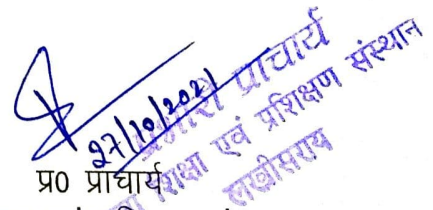 27/10/2021
प्रभारी प्राचार्य
शिक्षा एवं प्रशिक्षण संस्थान
लखीसराय
प्र0 प्राचार्य